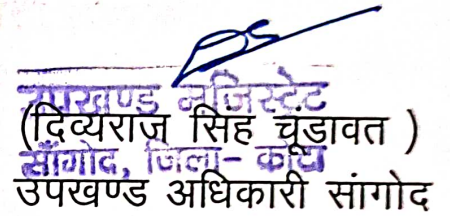 उपखण्ड मजिस्टेट
(दिव्यराज सिंह चूंडावत )
सॉंगोद, जिला- कोटा
उपखण्ड अधिकारी सांगोद